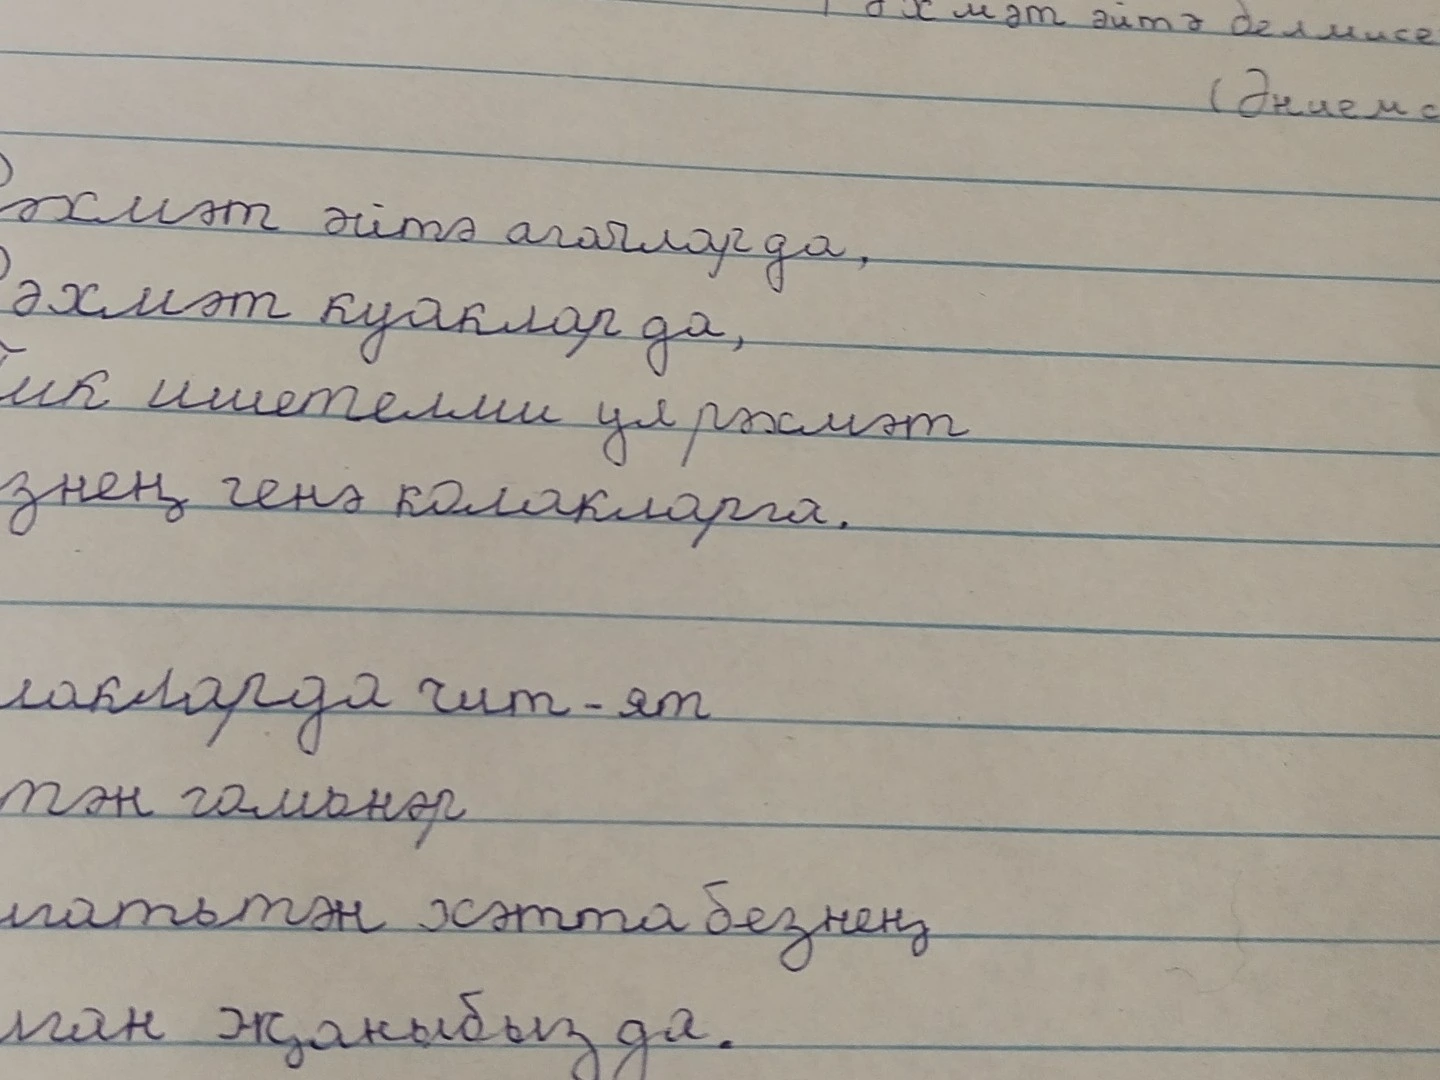 Рәхмәт әйтә белмисе
(Әнием с
Рәхмәт әйтә агачлар да,
Рәхмәт куаклар да,
Тик ишетелми ул рәхмәт
знең генә колакларга.
лакларда чит-ят
тән гамьнәр
матьтән хәтта безнең
лган җаныбыз да.